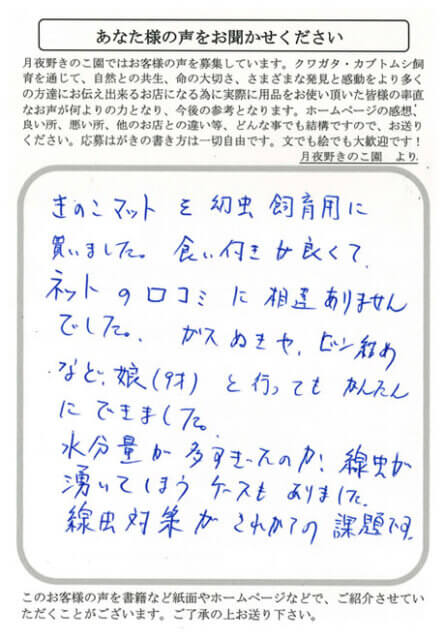 あなた様の声をお聞かせください
月夜野きのこ園ではお客様の声を募集しています。クワガタ・カブトムシ飼
育を通じて、自然との共生、命の大切さ、さまざまな発見と感動をより多く
の方達にお伝え出来るお店になる為に実際に用品をお使い頂いた皆様の率直
なお声が何よりの力となり、今後の参考となります。ホームページの感想、
良い所、悪い所、他のお店との違い等、どんな事でも結構ですので、お送り
ください。応募はがきの書き方は一切自由です。文でも絵でも大歓迎です！
月夜野きのこ園 より
きのこマットを幼虫飼育用に
買いました。食い付きが良くて、
ネットの口コミに相違ありません
でした。ガスぬきや、ビン詰め
など、娘(9才)と行ってもかんたん
にできました。
水分量が多すぎたのか、線虫が
湧いてしまうケースもありました。
線虫対策がこれからの課題です。
このお客様の声を書籍など紙面やホームページなどで、ご紹介させてい
ただくことがございます。ご了承の上お送り下さい。